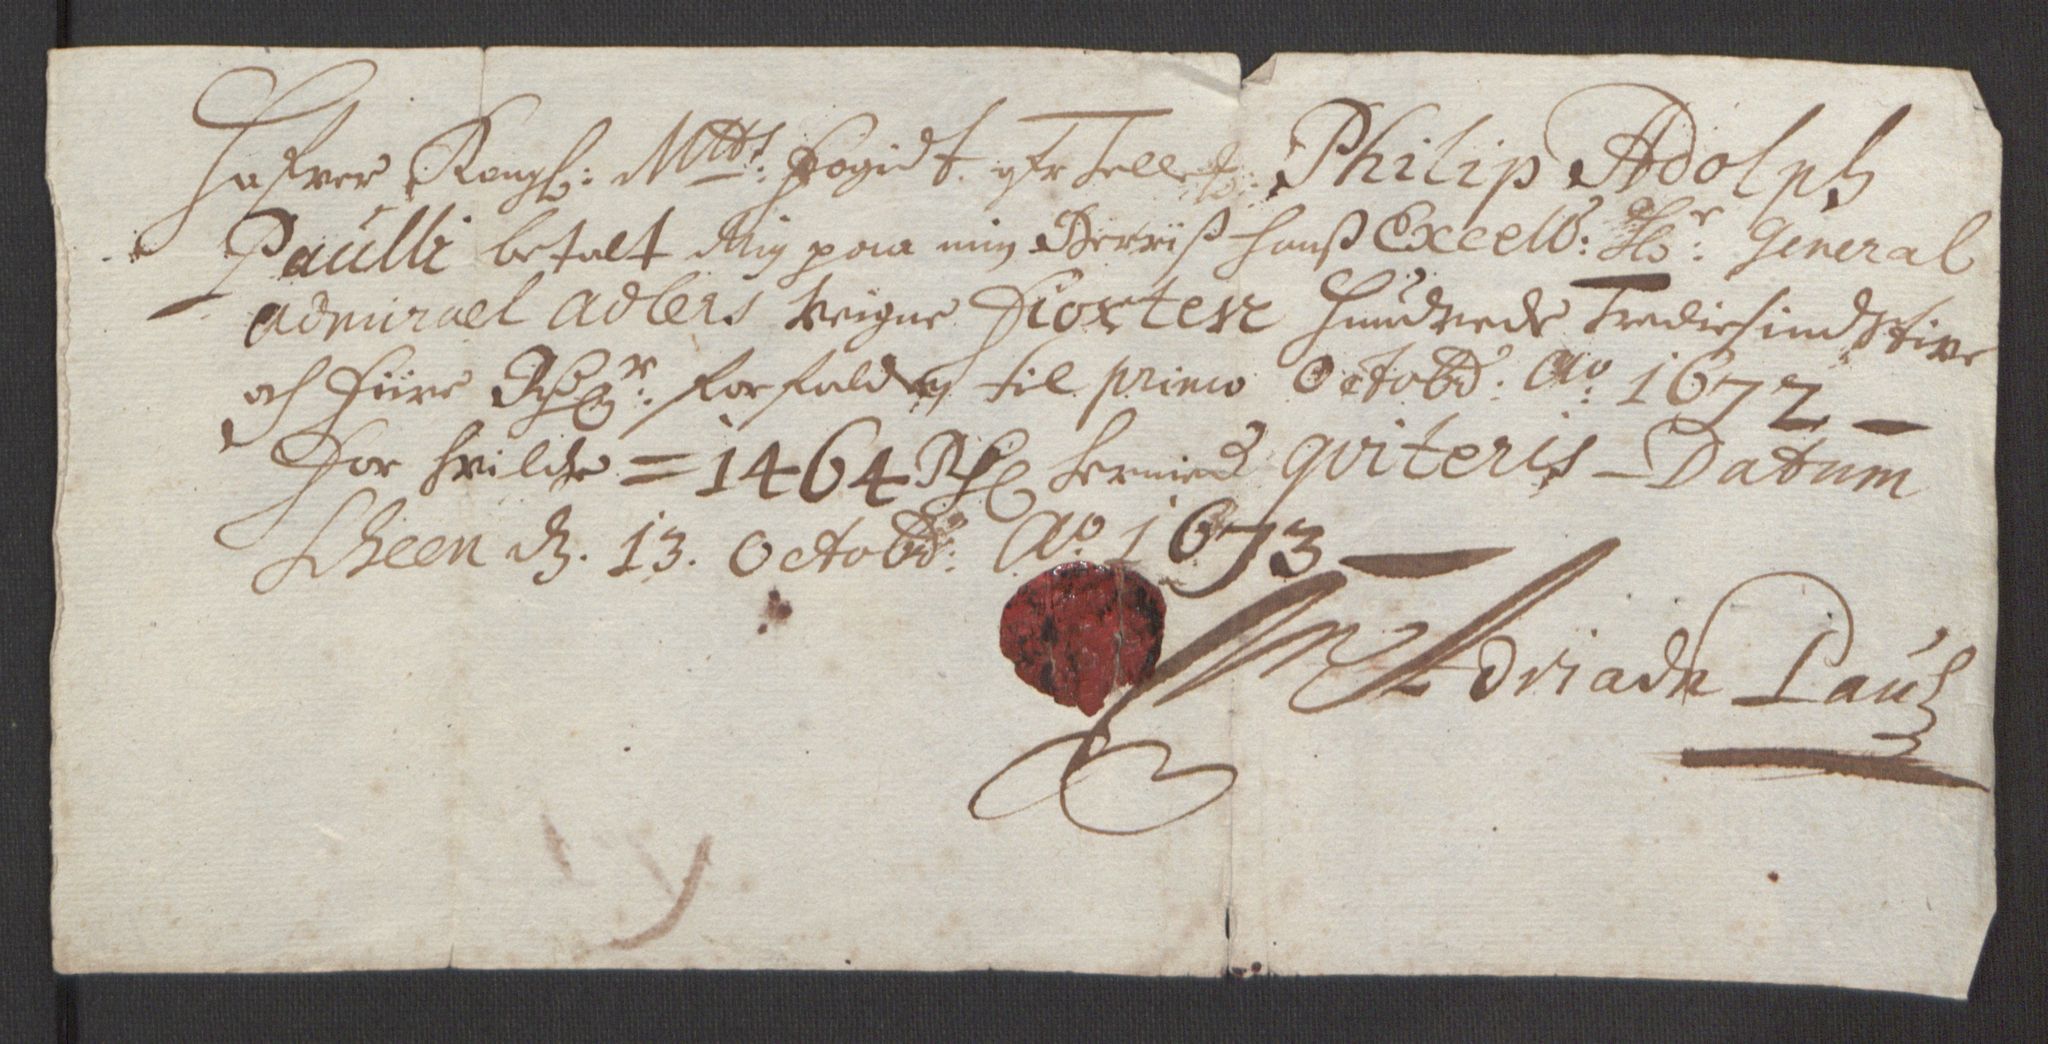 Hafver Kongl: Mtts: fogidt ofr Telle: Philip Adolph
Paulli betalt Mig paa min Herris hans Excell: Hr: General
Admirael Adlers Veigne Fiorten Hundrede Trediesindstive
och fiire Rdr: forfalden til primo Octobr: Ao: 1672 –
For hvilke = 1464 Rd hermed qviteris – Datum
Scheen d. 13. Octobr: Ao 1673 –
Adriaen Paus